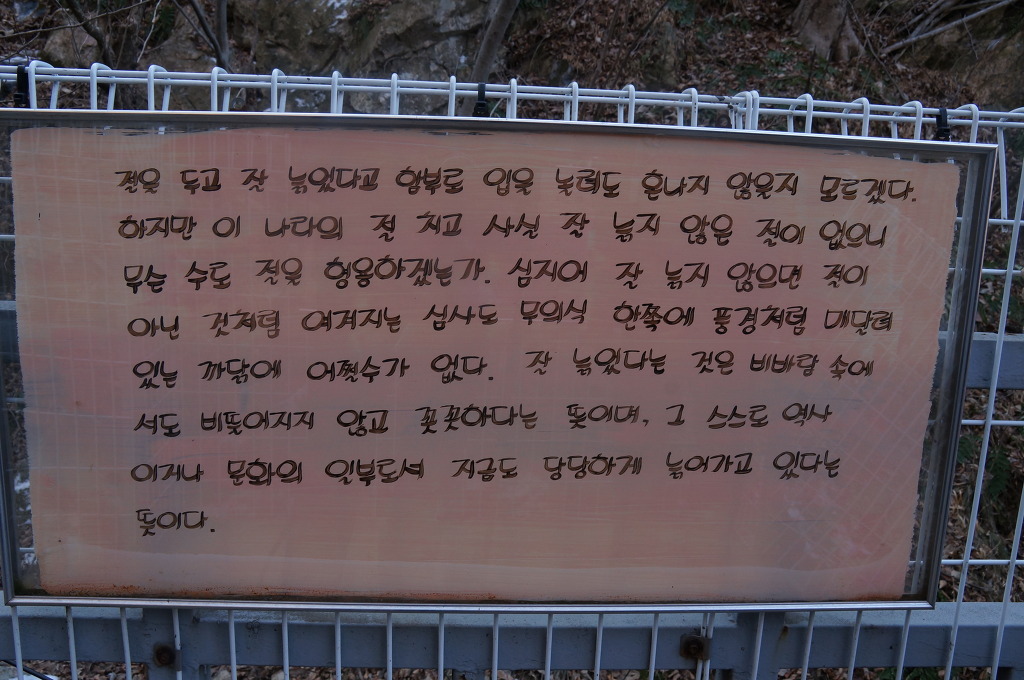 절을 두고 잘 늙었다고 함부로 입을 놀려도 혼나지 않을지 모르겠다.
하지만 이 나라의 절 치고 사실 잘 늙지 않은 절이 없으니
무슨 수로 절을 형용하겠는가. 심지어 잘 늙지 않으면 절이
아닌 것처럼 여겨지는 심사도 무의식 한쪽에 풍경처럼 매달려
있는 까닭에 어쩔수가 없다. 잘 늙었다는 것은 비바람 속에
서도 비뚤어지지 않고 꼿꼿하다는 뜻이며, 그 스스로 역사
이거나 문화의 일부로서 지금도 당당하게 늙어가고 있다는
뜻이다.